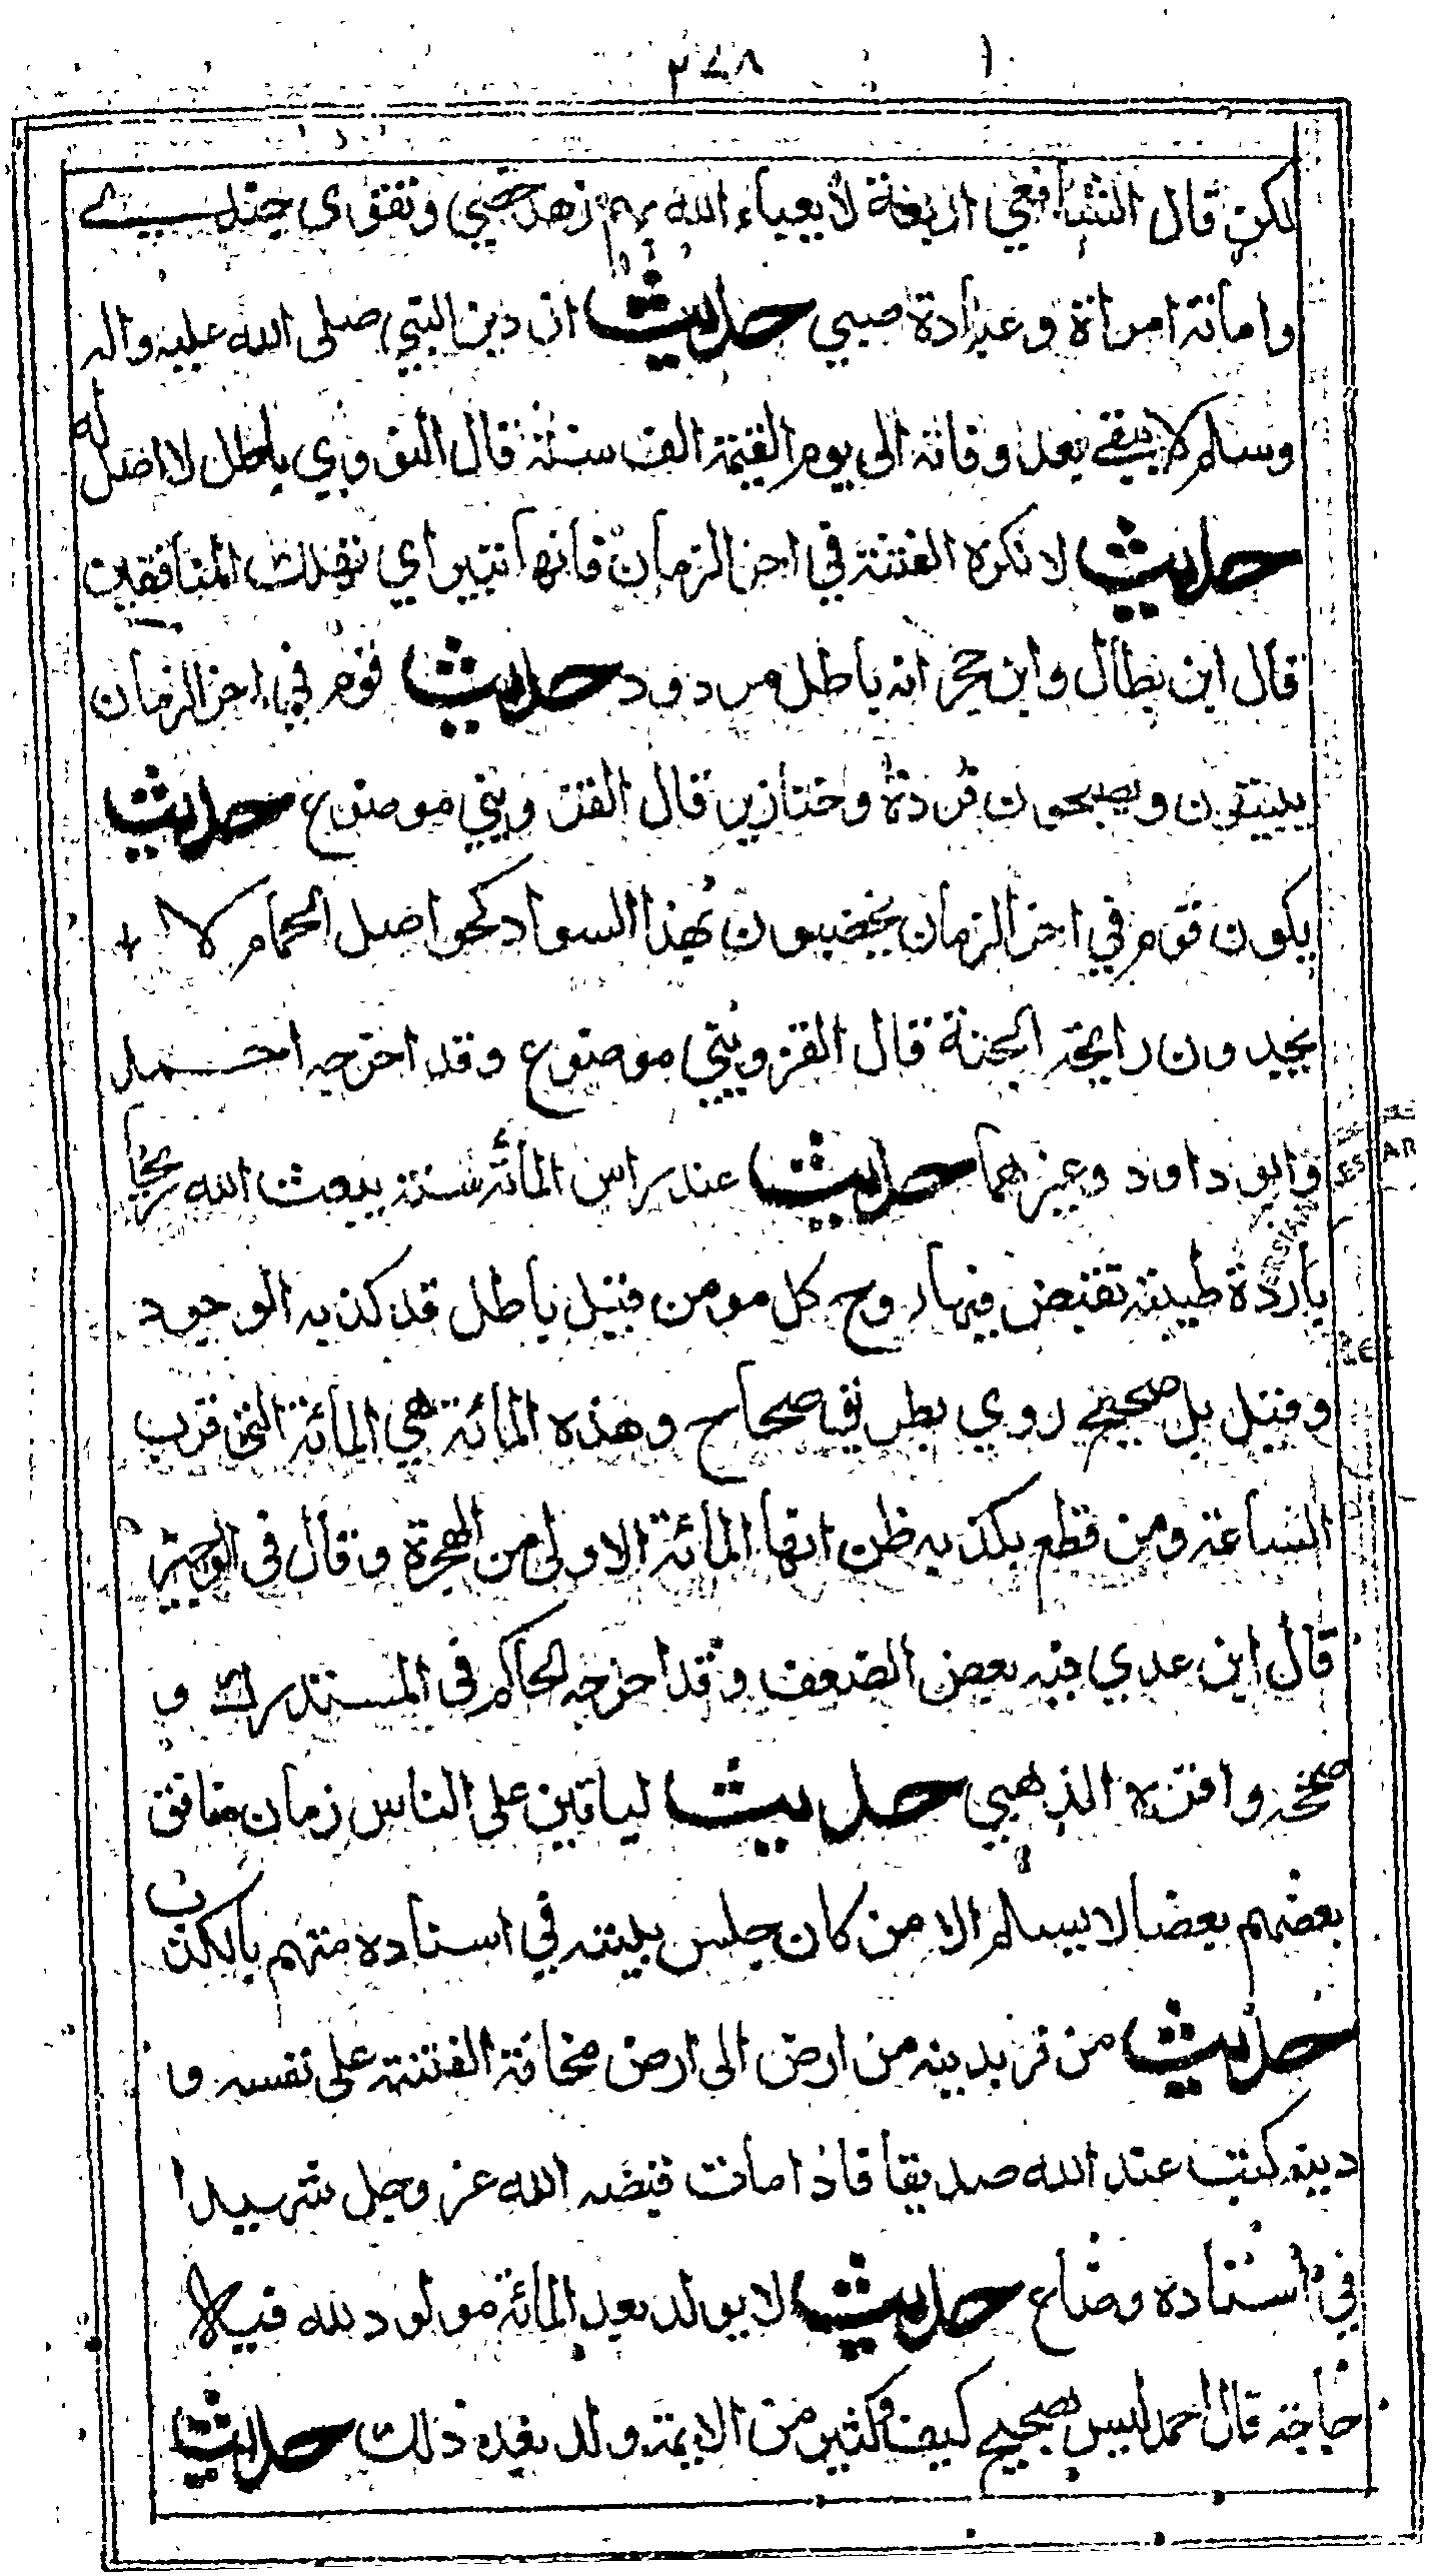 ٢٤٨
لكن قال الشافعي اربعة لا يعباء الله بهم زهد خصي وتقوى جندي
وامانة امراة وعبادة صبي حديث ان دين النبي صلى الله عليه واله
وسلم لا يبقى بعد وفاته الى يوم القيمة الف سنة قال النووي باطل لا اصل له
حديث لا تكره الفتنة في اخر الزمان فانها تبير اي تهلك المنافقين
قال ابن بطال وابن حجر انه باطل مردود حديث قوم في اخر الزمان
يبيتون ويصبحون قردة وخنازير قال القزويني موضوع حديث
يكون قوم في اخر الزمان يخضبون بهذا السواد كحواصل الحمام لا
يجدون رايحة الجنة قال القزويني موضوع وقد اخرجه احمد
وابو داود وغيرهما حديث عند راس المائة سنة يبعث الله ريحا
باردة طيبة تقبض فيها روح كل مومن قيل باطل قد كذبه الوجود
وقيل بل صحيح روي بطريق صحاح وهذه المائة هي المائة التي قرب
الساعة ومن قطع بكذبه ظن انها المائة الاولى من الهجرة وقال في الوجيز
قال ابن عدي فيه بعض الضعف وقد اخرجه الحاكم في المستدرك و
صححه واقره الذهبي حديث لياتين على الناس زمان منافق
بعضهم بعضا لا يسلم الا من كان جلس بيته في اسناده متهم بالكذب
حديث من فر بدينه من ارض الى ارض مخافة الفتنة على نفسه و
دينه كتب عند الله صديقا فاذا مات قبضه الله عز وجل شهيدا
في اسناده وضاع حديث لا يولد بعد المائة مولود لله فيه
حاجة قال احمد ليس بصحيح كيف وكثير من الايمة ولد بعد ذلك حديث